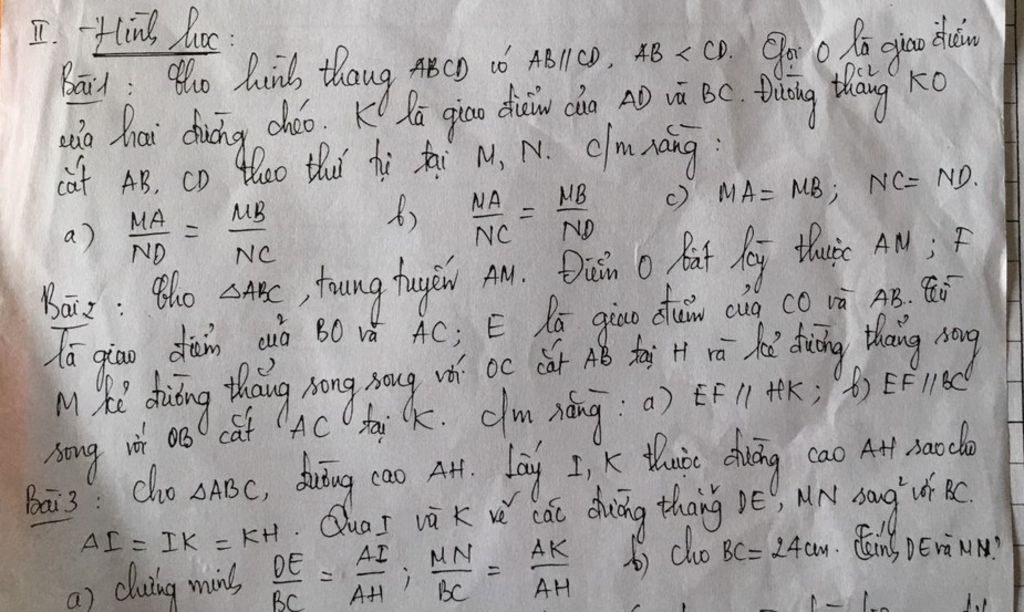 II. - Hình học:
Bài 1: Cho hình thang ABCD có AB//CD, AB < CD. Gọi O là giao điểm
của hai đường chéo. K là giao điểm của AD và BC. Đường thẳng KO
cắt AB, CD theo thứ tự tại M, N. C/m rằng:
a) MA/ND = MB/NC b) MA/NC = MB/ND c) MA = MB; NC = ND.
Bài 2: Cho △ABC, trung tuyến AM. Điểm O bất kỳ thuộc AM; F
là giao điểm của BO và AC; E là giao điểm của CO và AB. Từ
M kẻ đường thẳng song song với OC cắt AB tại H và kẻ đường thẳng song
song với OB cắt AC tại K. C/m rằng: a) EF // HK; b) EF // BC
Bài 3: Cho △ABC, đường cao AH. Lấy I, K thuộc đường cao AH sao cho
AI = IK = KH. Qua I và K vẽ các đường thẳng DE, MN song² với BC.
a) chứng minh DE/BC = AI/AH; MN/BC = AK/AH b) Cho BC = 24cm. Tính DE và MN?